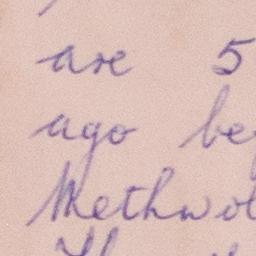 are 5
ago be
Methwol